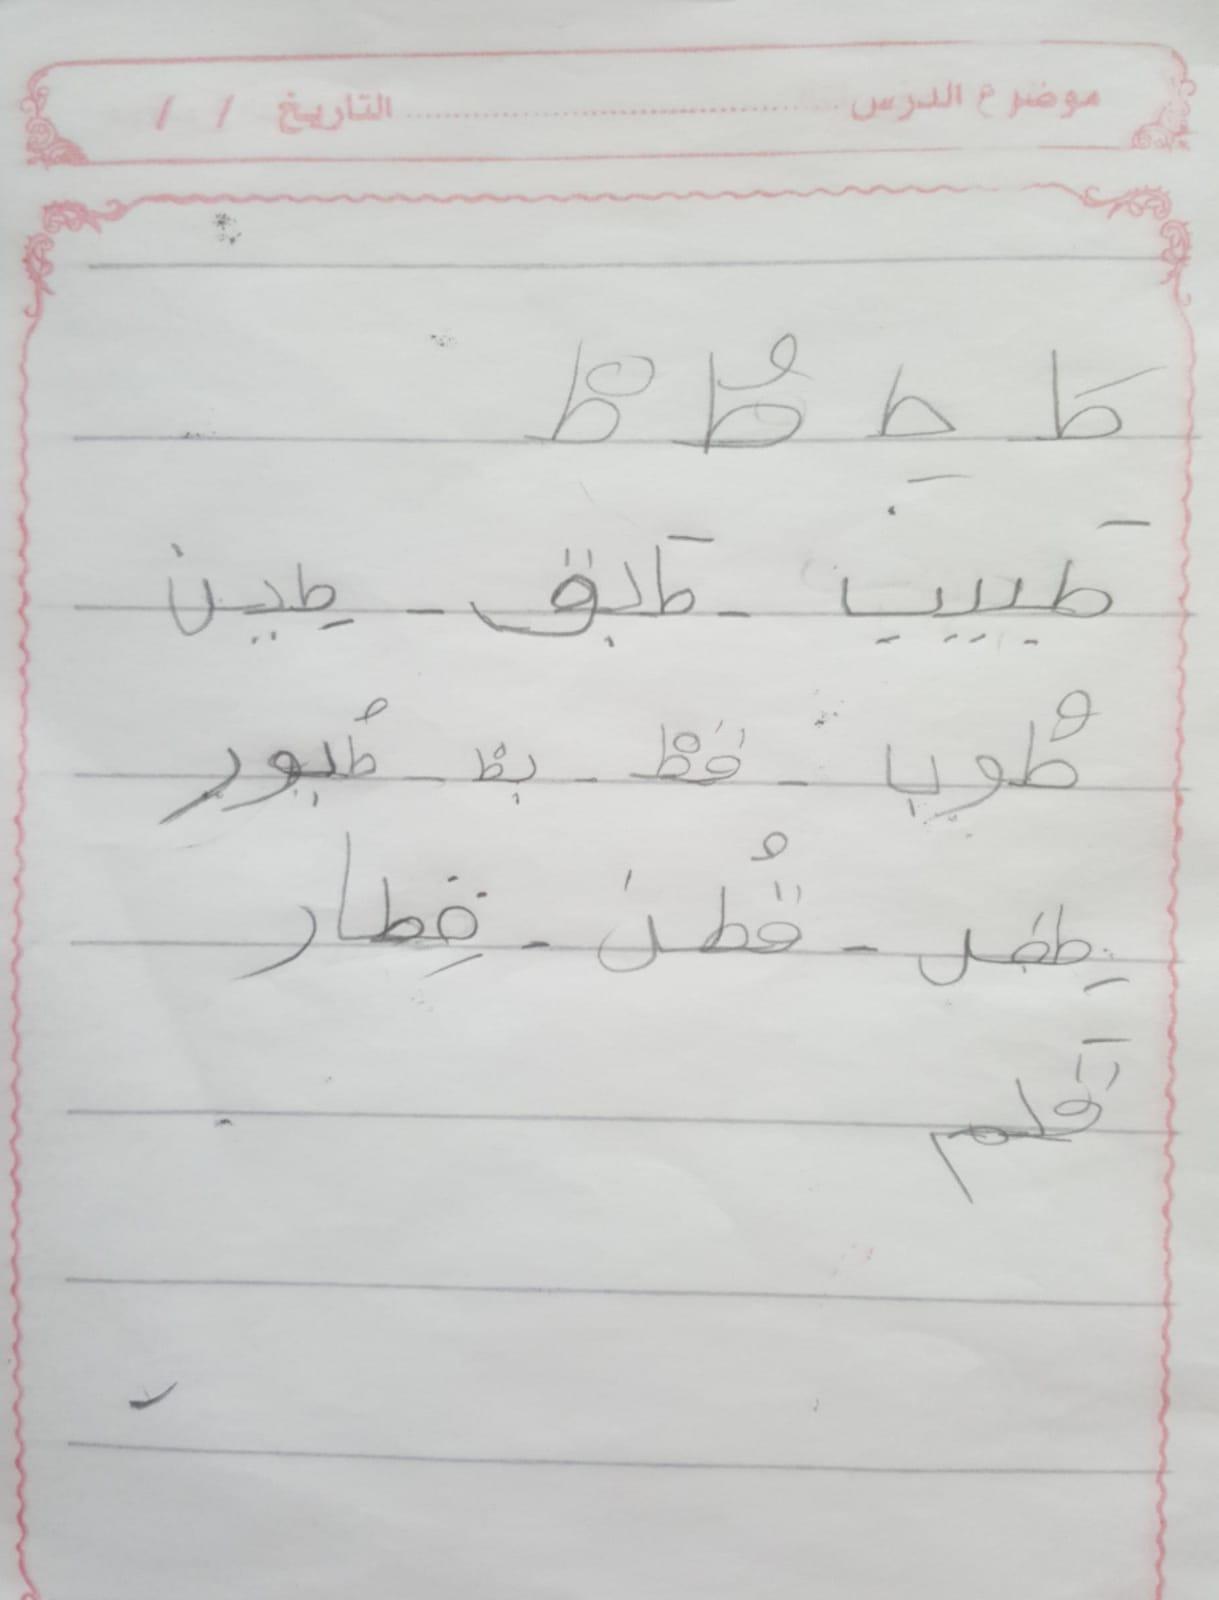 موضوع الدرس ........................ التاريخ / /
طَ طِ طُ طْ
طَبيب - طَبق - طِين
طُوب - قطْ - بطْ - طُيور
طِفل - قُطن - قِطار
قَلم